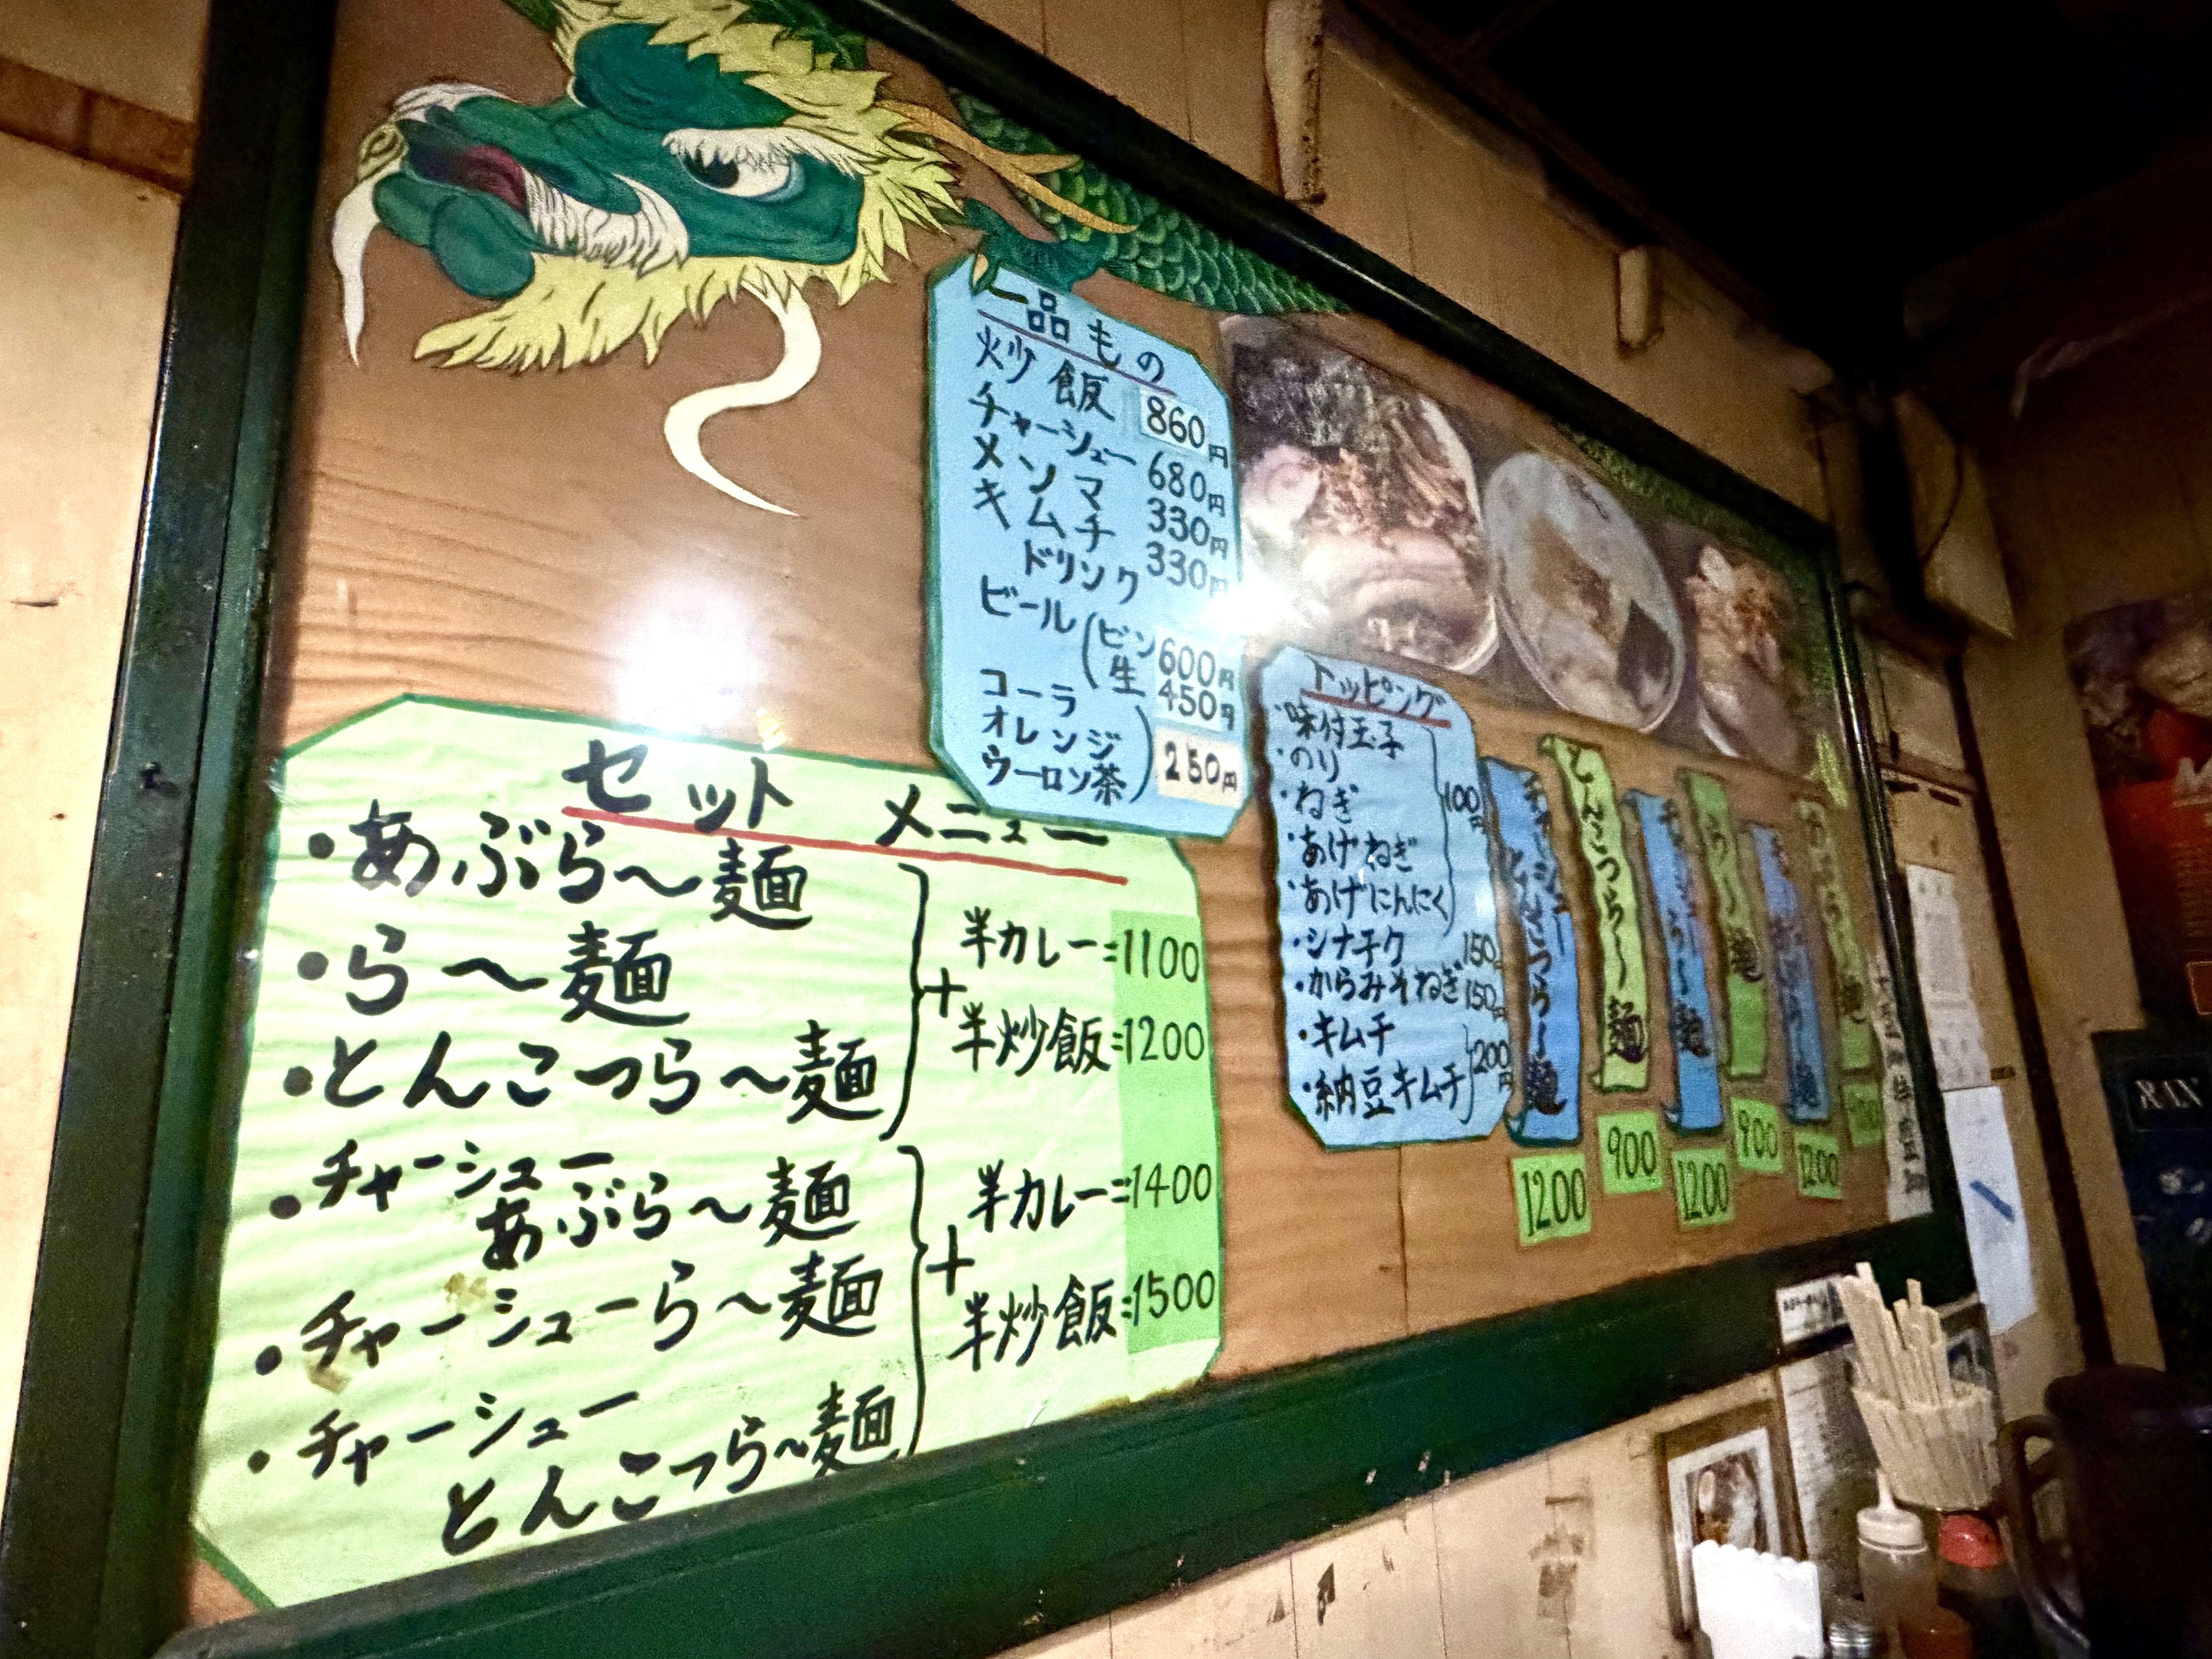 セットメニュー
・あぶら〜麺
・ら〜麺
・とんこつら〜麺
+
半カレー=1100
半炒飯=1200
・チャーシュー
あぶら〜麺
・チャーシューら〜麺
・チャーシュー
とんこつら〜麺
+
半カレー=1400
半炒飯=1500
一品もの
炒飯 860円
チャーシュー 680円
メンマ 330円
キムチ 330円
ドリンク
ビール(ビン 600円
生 450円
コーラ
オレンジ
ウーロン茶) 250円
トッピング
・味付玉子
・のり
・ねぎ
・あげねぎ
・あげにんにく
100円
・シナチク 150円
・からみそねぎ 150円
・キムチ
・納豆キムチ
200円
チャーシューとんこつら〜麺
1200
とんこつら〜麺
900
チャーシューら〜麺
1200
ら〜麺
900
1200